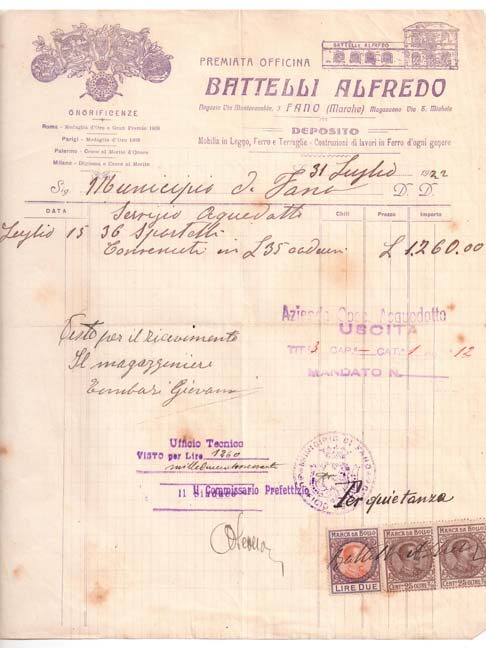 PREMIATA OFFICINA
BATTELLI ALFREDO
BATTELLI ALFREDO
Negozio Via Montevecchio, 3 FANO (Marche) Magazzeno Via S. Michele
DEPOSITO
Mobilia in Legno, Ferro e Terraglie - Costruzioni di lavori in Ferro d'ogni genere
ONORIFICENZE
Roma - Medaglia d'Oro e Gran Premio
Parigi - Medaglia d'Oro
Palermo - Croce al Merito d'Onore
Milano - Diploma e Croce al Merito
31 Luglio 1922
Sig. Municipio di Fano D. D.
DATA Chili Prezzo Importo
Servizio Aquedotto
Luglio 15 36 Sportelli
Convenuti in £ 35 caduno £ 1.260.00
Azienda Spec. Acquedotto
USCITA
TIT 3 CAP. CAT. 1 12
MANDATO N.
Visto per il ricevimento
Il magazziniere
Giovanni
Ufficio Tecnico
VISTO per Lire 1260
milleduecentosessanta
Il Commissario Prefettizio
Il Sindaco
MUNICIPIO DI FANO
Per quietanza
MARCA DA BOLLO
LIRE DUE
MARCA DA BOLLO
CENT.MI 25
MARCA DA BOLLO
CENT.MI 25
Battelli Alfredo